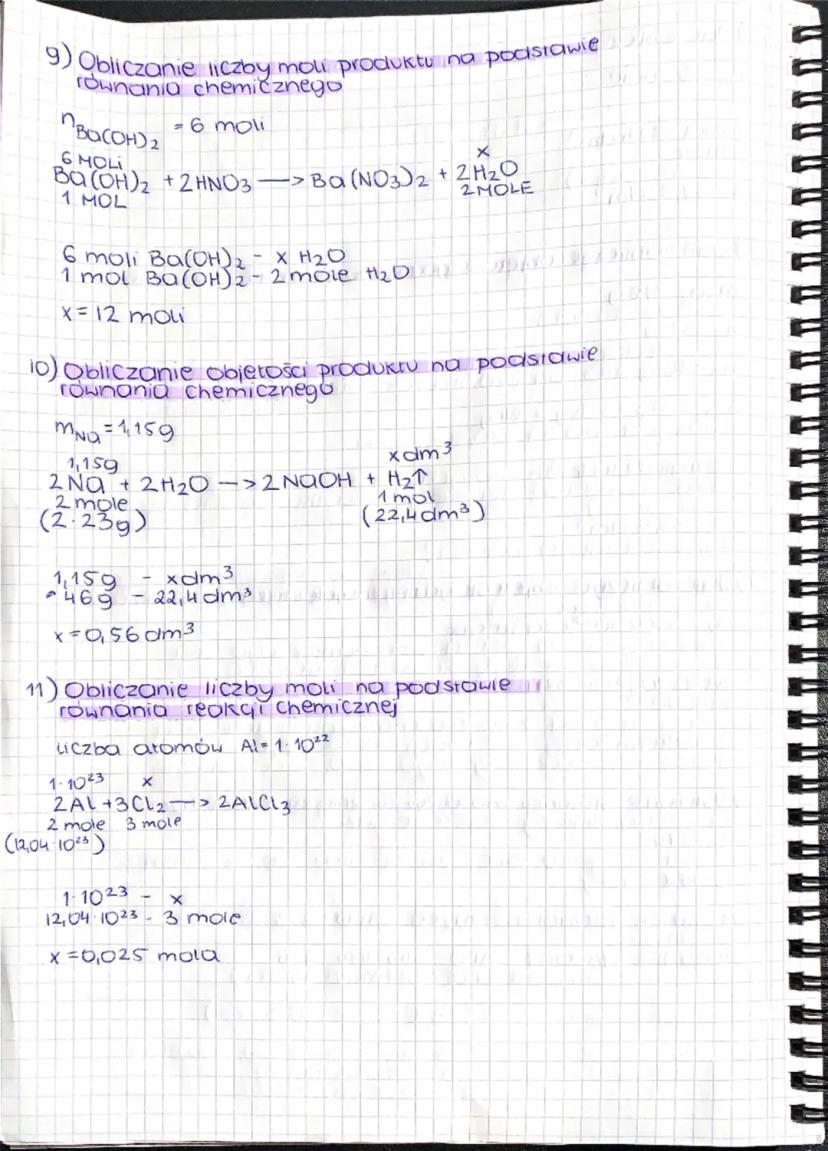 9) Obliczanie liczby moli produktu na podstawie
równania chemicznego
nBa(OH)2 = 6 moli
6 MOLI x
Ba(OH)2 + 2HNO3 —> Ba(NO3)2 + 2H2O
1 MOL 2 MOLE
6 moli Ba(OH)2 - x H2O
1 mol Ba(OH)2 - 2 mole H2O
x = 12 moli
10) Obliczanie objętości produktu na podstawie
równania chemicznego
mNa = 1,15g
1,15g xdm³
2Na + 2H2O —> 2NaOH + H2↑
2 mole 1 mol
(2·23g) (22,4dm³)
1,15g - xdm³
46g - 22,4dm³
x = 0,56dm³
11) Obliczanie liczby moli na podstawie
równania reakcji chemicznej
liczba atomów Al = 1·10²²
1·10²³ x
2Al + 3Cl2 —> 2AlCl3
2 mole 3 mole
(12,04·10²³)
1·10²³ - x
12,04·10²³ - 3 mole
x = 0,025 mola